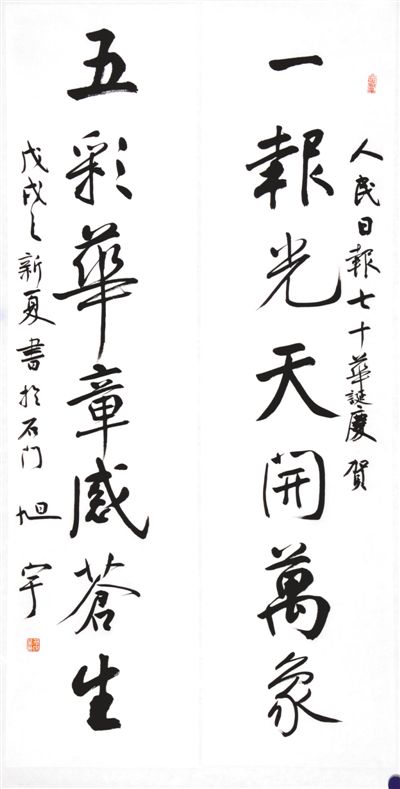 人民日報七十華誕慶賀
一報光天開萬象
五彩華章感蒼生
戊戌之新夏書於石门 旭宇